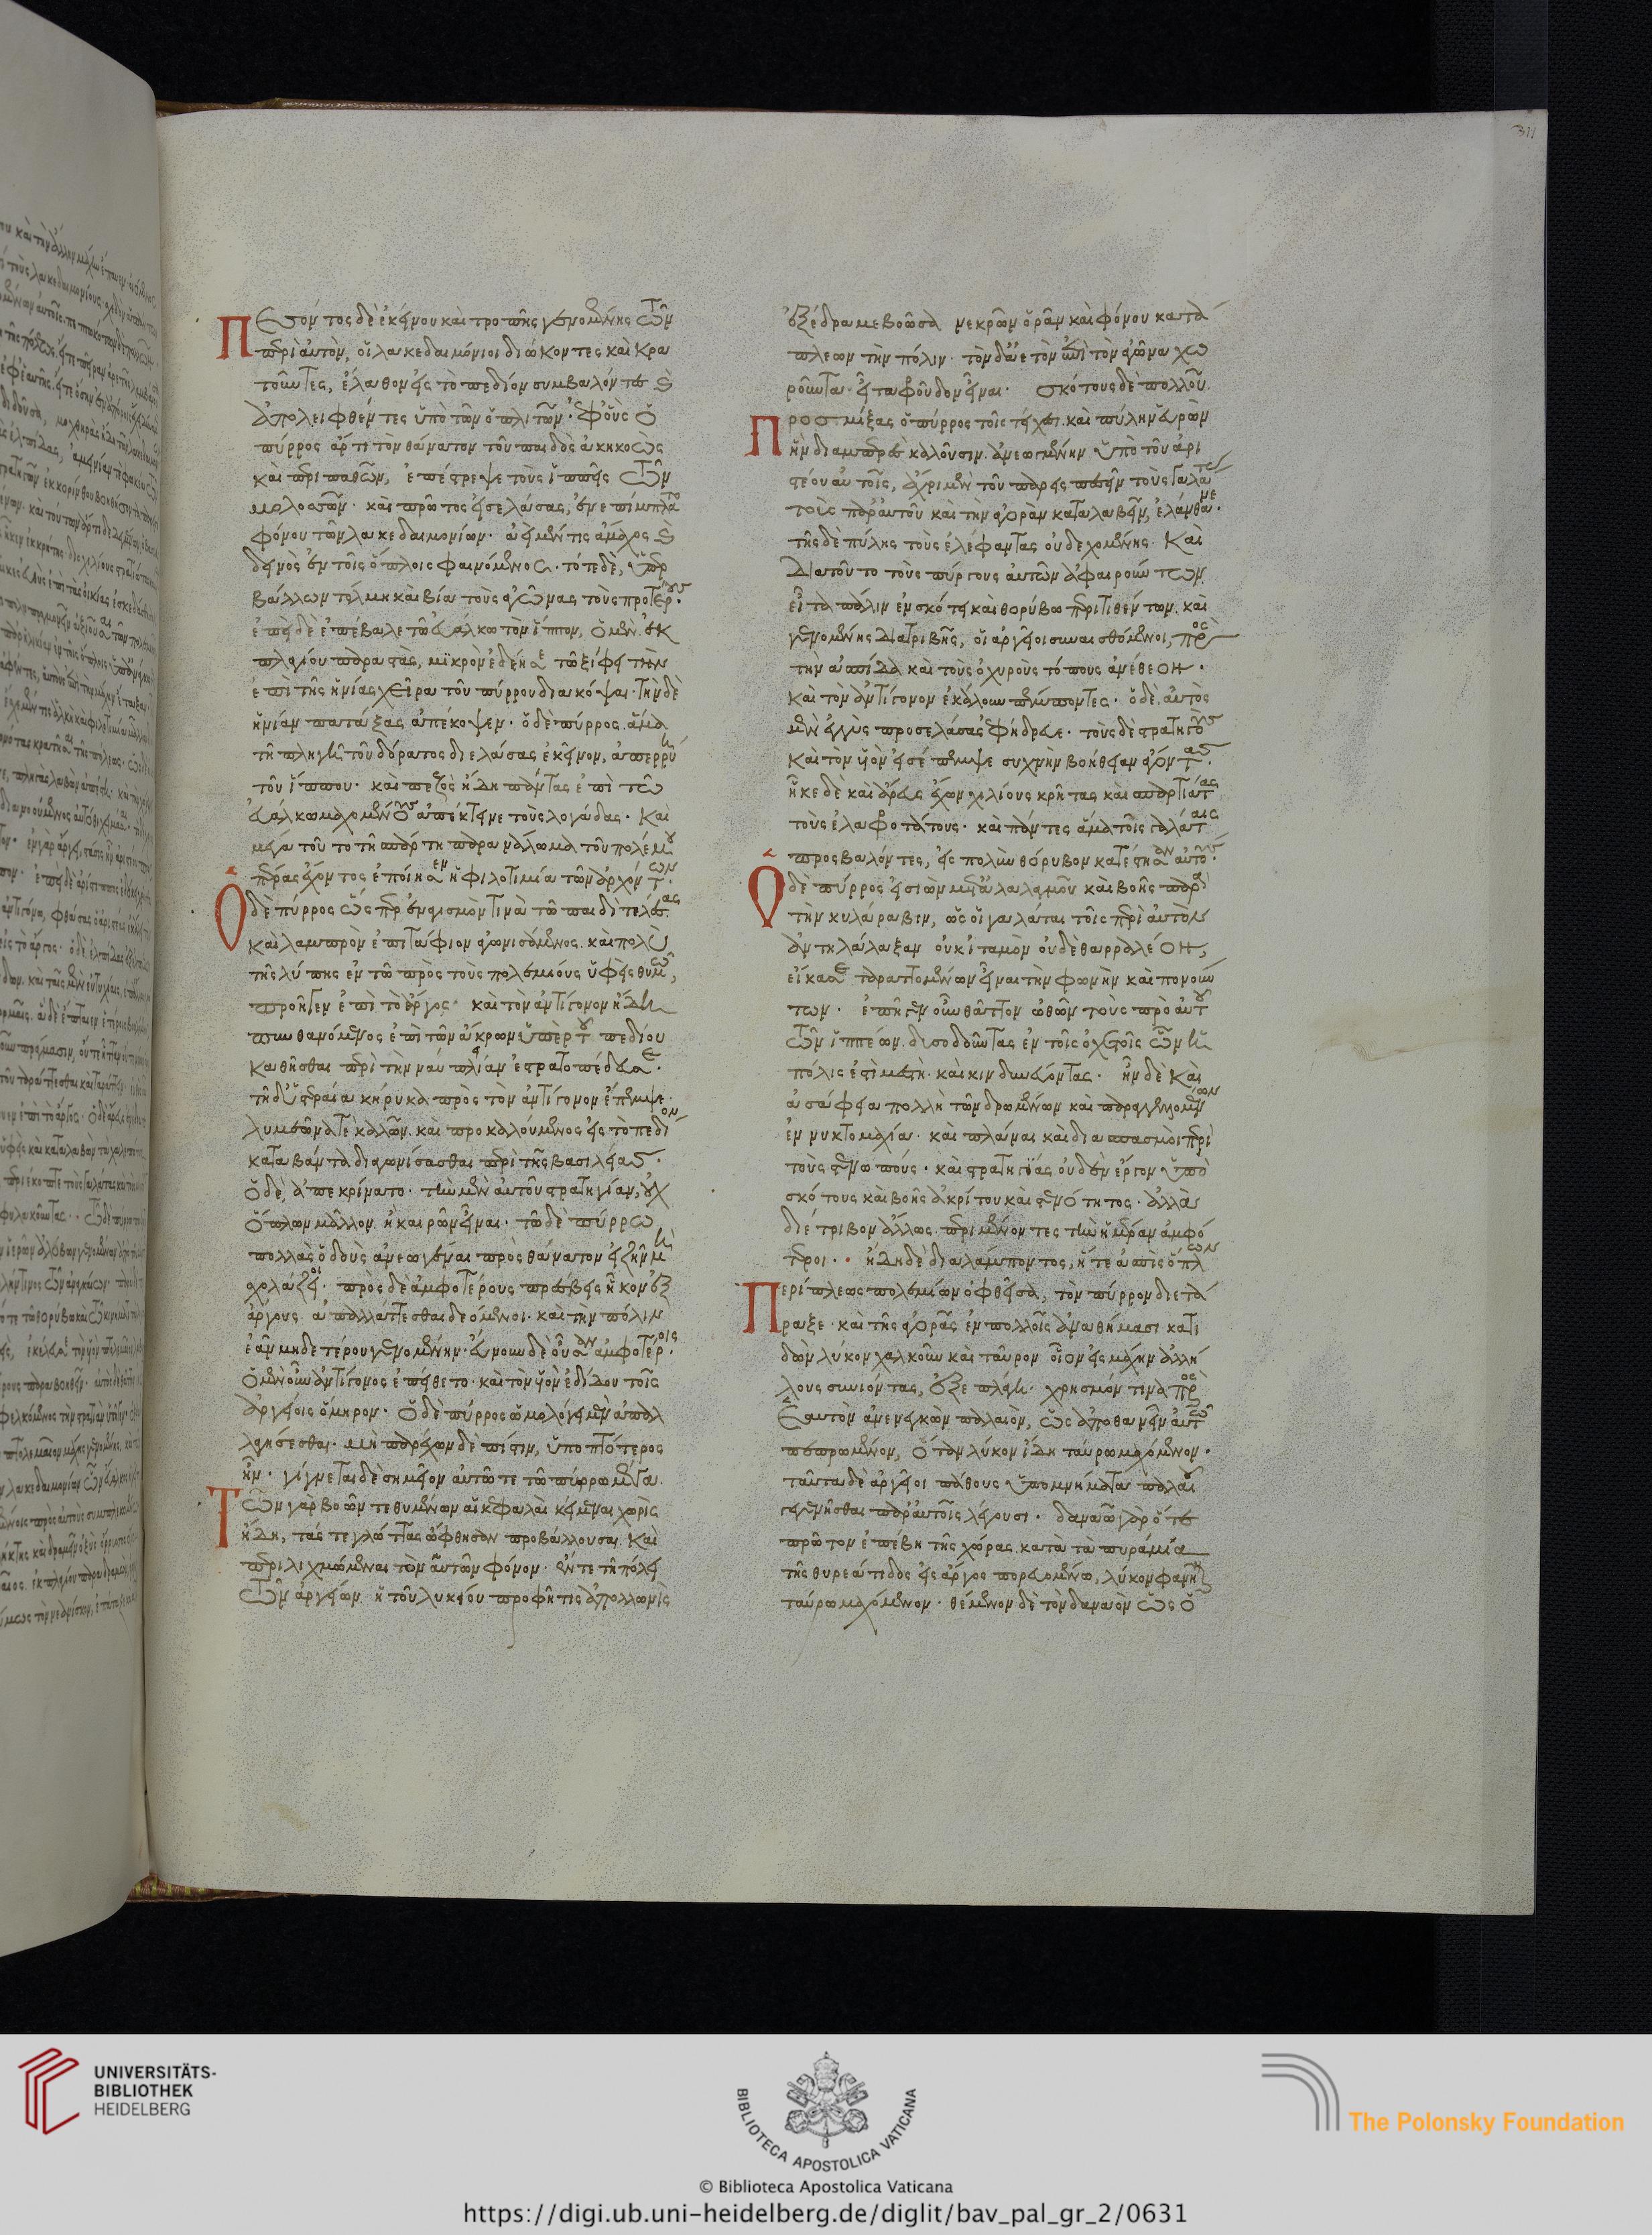 Πεσόντος δὲ ἐκείνου καὶ τροπῆς γενομένης τῶν
περὶ αὐτὸν, οἱ λακεδαιμόνιοι διώκοντες καὶ κρα
τοῦντες, ἔλαθον εἰς τὸ πεδίον συμβαλόντες καὶ
ἀπολειφθέντες ὑπὸ τῶν ὁπλιτῶν· ἐφ' οὓς ὁ
πύρρος ἄρτι τὸν θάνατον τοῦ παιδὸς ἀκηκοὼς
καὶ περιπαθῶν, ἐπέστρεψε τοὺς ἱππεῖς τῶν
μολοσσῶν· καὶ πρῶτος εἰσελάσας, ἐνεπίμπλατο
φόνου τῶν λακεδαιμονίων· ἀεὶ μέν τις ἄμαχος καὶ
δεινὸς ἐν τοῖς ὅπλοις φαινόμενος· τότε δὲ, ὑπερ
βάλλων τόλμη καὶ βία τοὺς ἀγῶνας τοὺς προτέρους·
ἐπεὶ δὲ ἐπέβαλε τῶ εὐάλκω τὸν ἵππον, ὁ μὲν ἐκ
πλαγίου παραστὰς, μικρὸν ἐδέησε τῶ ξίφει τὴν
ἐπὶ τῆς ἡνίας χεῖρα τοῦ πύρρου διακόψαι· τὴν δὲ
ἡνίαν πατάξας ἀπέκοψεν· ὁ δὲ πύρρος ἅμα
τῆ πληγῆ τοῦ δόρατος διελάσας ἐκεῖνον, ἀπερρύη
τοῦ ἵππου· καὶ πεζὸς ἤδη πάντας ἐπὶ τῶ
εὐάλκω μαχομένους ἀπέκτεινε τοὺς λογάδας· Καὶ
μέγα τοῦτο τῆ σπάρτη παρανάλωμα τοῦ πολέμου
πέρας ἔχοντος ἐποίησεν ἡ φιλοτιμία τῶν ἀρχόντων·
Ὁ δὲ πύρρος ὥσπερ ἐναγισμόν τινα τῶ παιδὶ τελέσας
καὶ λαμπρὸν ἐπιτάφιον ἀγωνισάμενος. καὶ πολὺ
τῆς λύπης ἐν τῶ πρὸς τοὺς πολεμίους ὑφεὶς θυμῶ,
προῆγεν ἐπὶ τὸ ἄργος· καὶ τὸν ἀντίγονον ἤδη
πυνθανόμενος ἐπὶ τῶν ἄκρων ὑπὲρ τοῦ πεδίου
καθῆσθαι περὶ τὴν ναυπλίαν ἐστρατοπέδευσε·
τῆ δ' ὑστεραία κήρυκα πρὸς τὸν ἀντίγονον ἔπεμψε
λυμεῶνά τε καλῶν. καὶ προκαλούμενος εἰς τὸ πεδίον
καταβάντα διαγωνίσασθαι περὶ τῆς βασιλείας·
ὁ δὲ, ἀπεκρίνατο· τὴν μὲν αὐτοῦ στρατηγίαν, οὐχ
ὅπλων μᾶλλον. ἢ καιρῶν εἶναι· τῶ δὲ πύρρω
πολλὰς ὁδοὺς ἀνεωγέναι πρὸς θάνατον εἰ ζῆν μὴ
σχολάζοι· πρὸς δὲ ἀμφοτέρους πρέσβεις ἧκον ἐξ
ἄργους. ἀπαλλάττεσθαι δεόμενοι· καὶ τὴν πόλιν
ἐᾶν μηδετέρου γενομένην· εὔνουν δὲ οὖσαν ἀμφοτέροις·
ὁ μὲν οὖν ἀντίγονος ἐπείθετο· καὶ τὸν υἱὸν ἐδίδου τοῖς
ἀργείοις ὅμηρον· ὁ δὲ πύρρος ὡμολόγει μὲν ἀπαλ
λαγήσεσθαι· μὴ παρέχων δὲ πίστιν, ὑποπτότερος
ἦν· γίγνεται δὲ σημεῖον αὐτῶ τε τῶ πύρρω μέγα.
Τῶν γὰρ βοῶν τεθυμένων αἱ κεφαλαὶ κείμεναι χωρὶς
ἤδη, τάς τε γλώττας ὤφθησαν προβάλλουσαι. Καὶ
περιλιχμώμεναι τὸν αὑτῶν φόνον· ἔν τε τῆ πόλει
τῶν ἀργείων. ἡ τοῦ λυκείου προφῆτις ἀπόλλωνος
ἐξέδραμε βοῶσα νεκρῶν ὁρᾶν καὶ φόνου κατά
πλεων τὴν πόλιν· τὸν δ' ἀετὸν ἐπὶ τὸν ἀγῶνα χω
ροῦντα· εἶτα φροῦδον εἶναι· σκότους δὲ πολλοῦ
Προσμίξας ὁ πύρρος τοῖς τείχεσι. καὶ πύλην εὑρὼν
ἣν διαμπερὲς καλοῦσιν. ἀνεωγμένην ὑπὸ τοῦ ἀρι
στέου αὐτοῖς, ἄχρι μὲν τοῦ παρεισπεσεῖν τοὺς γαλάτας
τοὺς παρ' αὐτοῦ καὶ τὴν ἀγορὰν καταλαβεῖν, ἐλάνθανε·
τῆς δὲ πύλης τοὺς ἐλέφαντας οὐ δεχομένης. Καὶ
Διὰ τοῦτο τοὺς πύργους αὐτῶν ἀφαιρούντων.
εἶτα πάλιν ἐν σκότει καὶ θορύβω περιτιθέντων. καὶ
γενομένης διατριβῆς, οἱ ἀργεῖοι συναισθόμενοι, πρὸς
τὴν ἀσπίδα καὶ τοὺς ὀχυροὺς τόπους ἀνέθεον·
καὶ τὸν ἀντίγονον ἐκάλουν πέμποντες· ὁ δὲ, αὐτὸς
μὲν ἐγγὺς προσελάσας ἐφήδρευε· τοὺς δὲ στρατηγοὺς
καὶ τὸν υἱὸν εἰσέπεμψε συχνὴν βοήθειαν ἄγοντας·
ἧκε δὲ καὶ ἀρεὺς ἔχων χιλίους κρῆτας καὶ σπαρτιάτας
τοὺς ἐλαφροτάτους· καὶ πάντες ἅμα τοῖς γαλάταις
προσβαλόντες, εἰς πολὺν θόρυβον κατέστησαν αὐτούς·
Ὁ δὲ πύρρος εἰσιὼν μετ' ἀλαλαγμοῦ καὶ βοῆς παρὰ
τὴν κυλάραβιν, ὡς οἱ γαλάται τοῖς περὶ αὐτὸν
ἀντηλάλαξαν οὐκ ἰταμὸν οὐδὲ θαρραλέον,
εἴκασε ταραττομένων εἶναι τὴν φωνὴν καὶ πονούν
των· ἐπῆγεν οὖν θᾶττον ὠθῶν τοὺς πρὸ αὐτοῦ
τῶν ἱππέων. δυσοδοῦντας ἐν τοῖς ὀχετοῖς ὧν ἡ
πόλις ἐστὶ μεστή. καὶ κινδυνεύοντας· ἦν δὲ καὶ
ἀσάφεια πολλὴ τῶν δρωμένων καὶ παραγγελλομένων
ἐν νυκτομαχία· καὶ πλάναι καὶ διασπασμοὶ περὶ
τοὺς στενωπούς· καὶ στρατηγίας οὐδὲν ἔργον ὑπὸ
σκότους καὶ βοῆς ἀκρίτου καὶ στενότητος· ἀλλὰ
διέτριβον ἄλλως περιμένοντες τὴν ἡμέραν ἀμφό
τεροι· ἤδη δὲ διαλάμποντος, ἥ τε ἀσπὶς ὅπλων
Περίπλεως πολεμίων ὀφθεῖσα, τὸν πύρρον διετά
ραξε· καὶ τῆς ἀγορᾶς ἐν πολλοῖς ἀναθήμασι κατι
δὼν λύκον χαλκοῦν καὶ ταῦρον οἷον εἰς μάχην ἀλλή
λοις συνιόντας, ἐξεπλάγη· χρησμόν τινα πρὸς
ἑαυτὸν ἀνενεγκὼν παλαιὸν, ὡς ἀποθανεῖν αὐτῶ
πεπρωμένον, ὅταν λύκον ἴδη ταύρω μαχόμενον·
ταῦτα δὲ ἀργεῖοι πάθους ὑπομνήματα παλαιοῦ
γεγενῆσθαι παρ' αὐτοῖς λέγουσι· δαναῶ γὰρ ὅτε
πρῶτον ἐπέβη τῆς χώρας. κατὰ τὰ πυράμια
τῆς θυρεάτιδος εἰς ἄργος πορευομένω, λύκον φανῆναι
ταύρω μαχόμενον· θέμενον δὲ τὸν δαναὸν ὡς ὁ
311
UNIVERSITÄTS-
BIBLIOTHEK
HEIDELBERG
BIBLIOTECA APOSTOLICA VATICANA
The Polonsky Foundation
© Biblioteca Apostolica Vaticana
https://digi.ub.uni-heidelberg.de/diglit/bav_pal_gr_2/0631